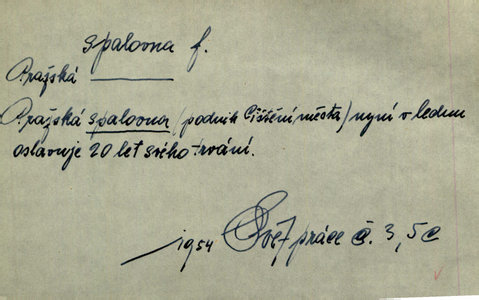 spalovna f.
Pražská
Pražská spalovna (podnik Čištění města) nyní v lednu
oslavuje 20 let svého trvání.
1954 Svět práce č. 3, 5c